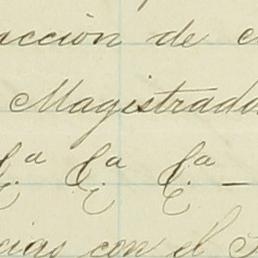 acción de
Magistrado
C.ª C.ª C.ª —
cias con el